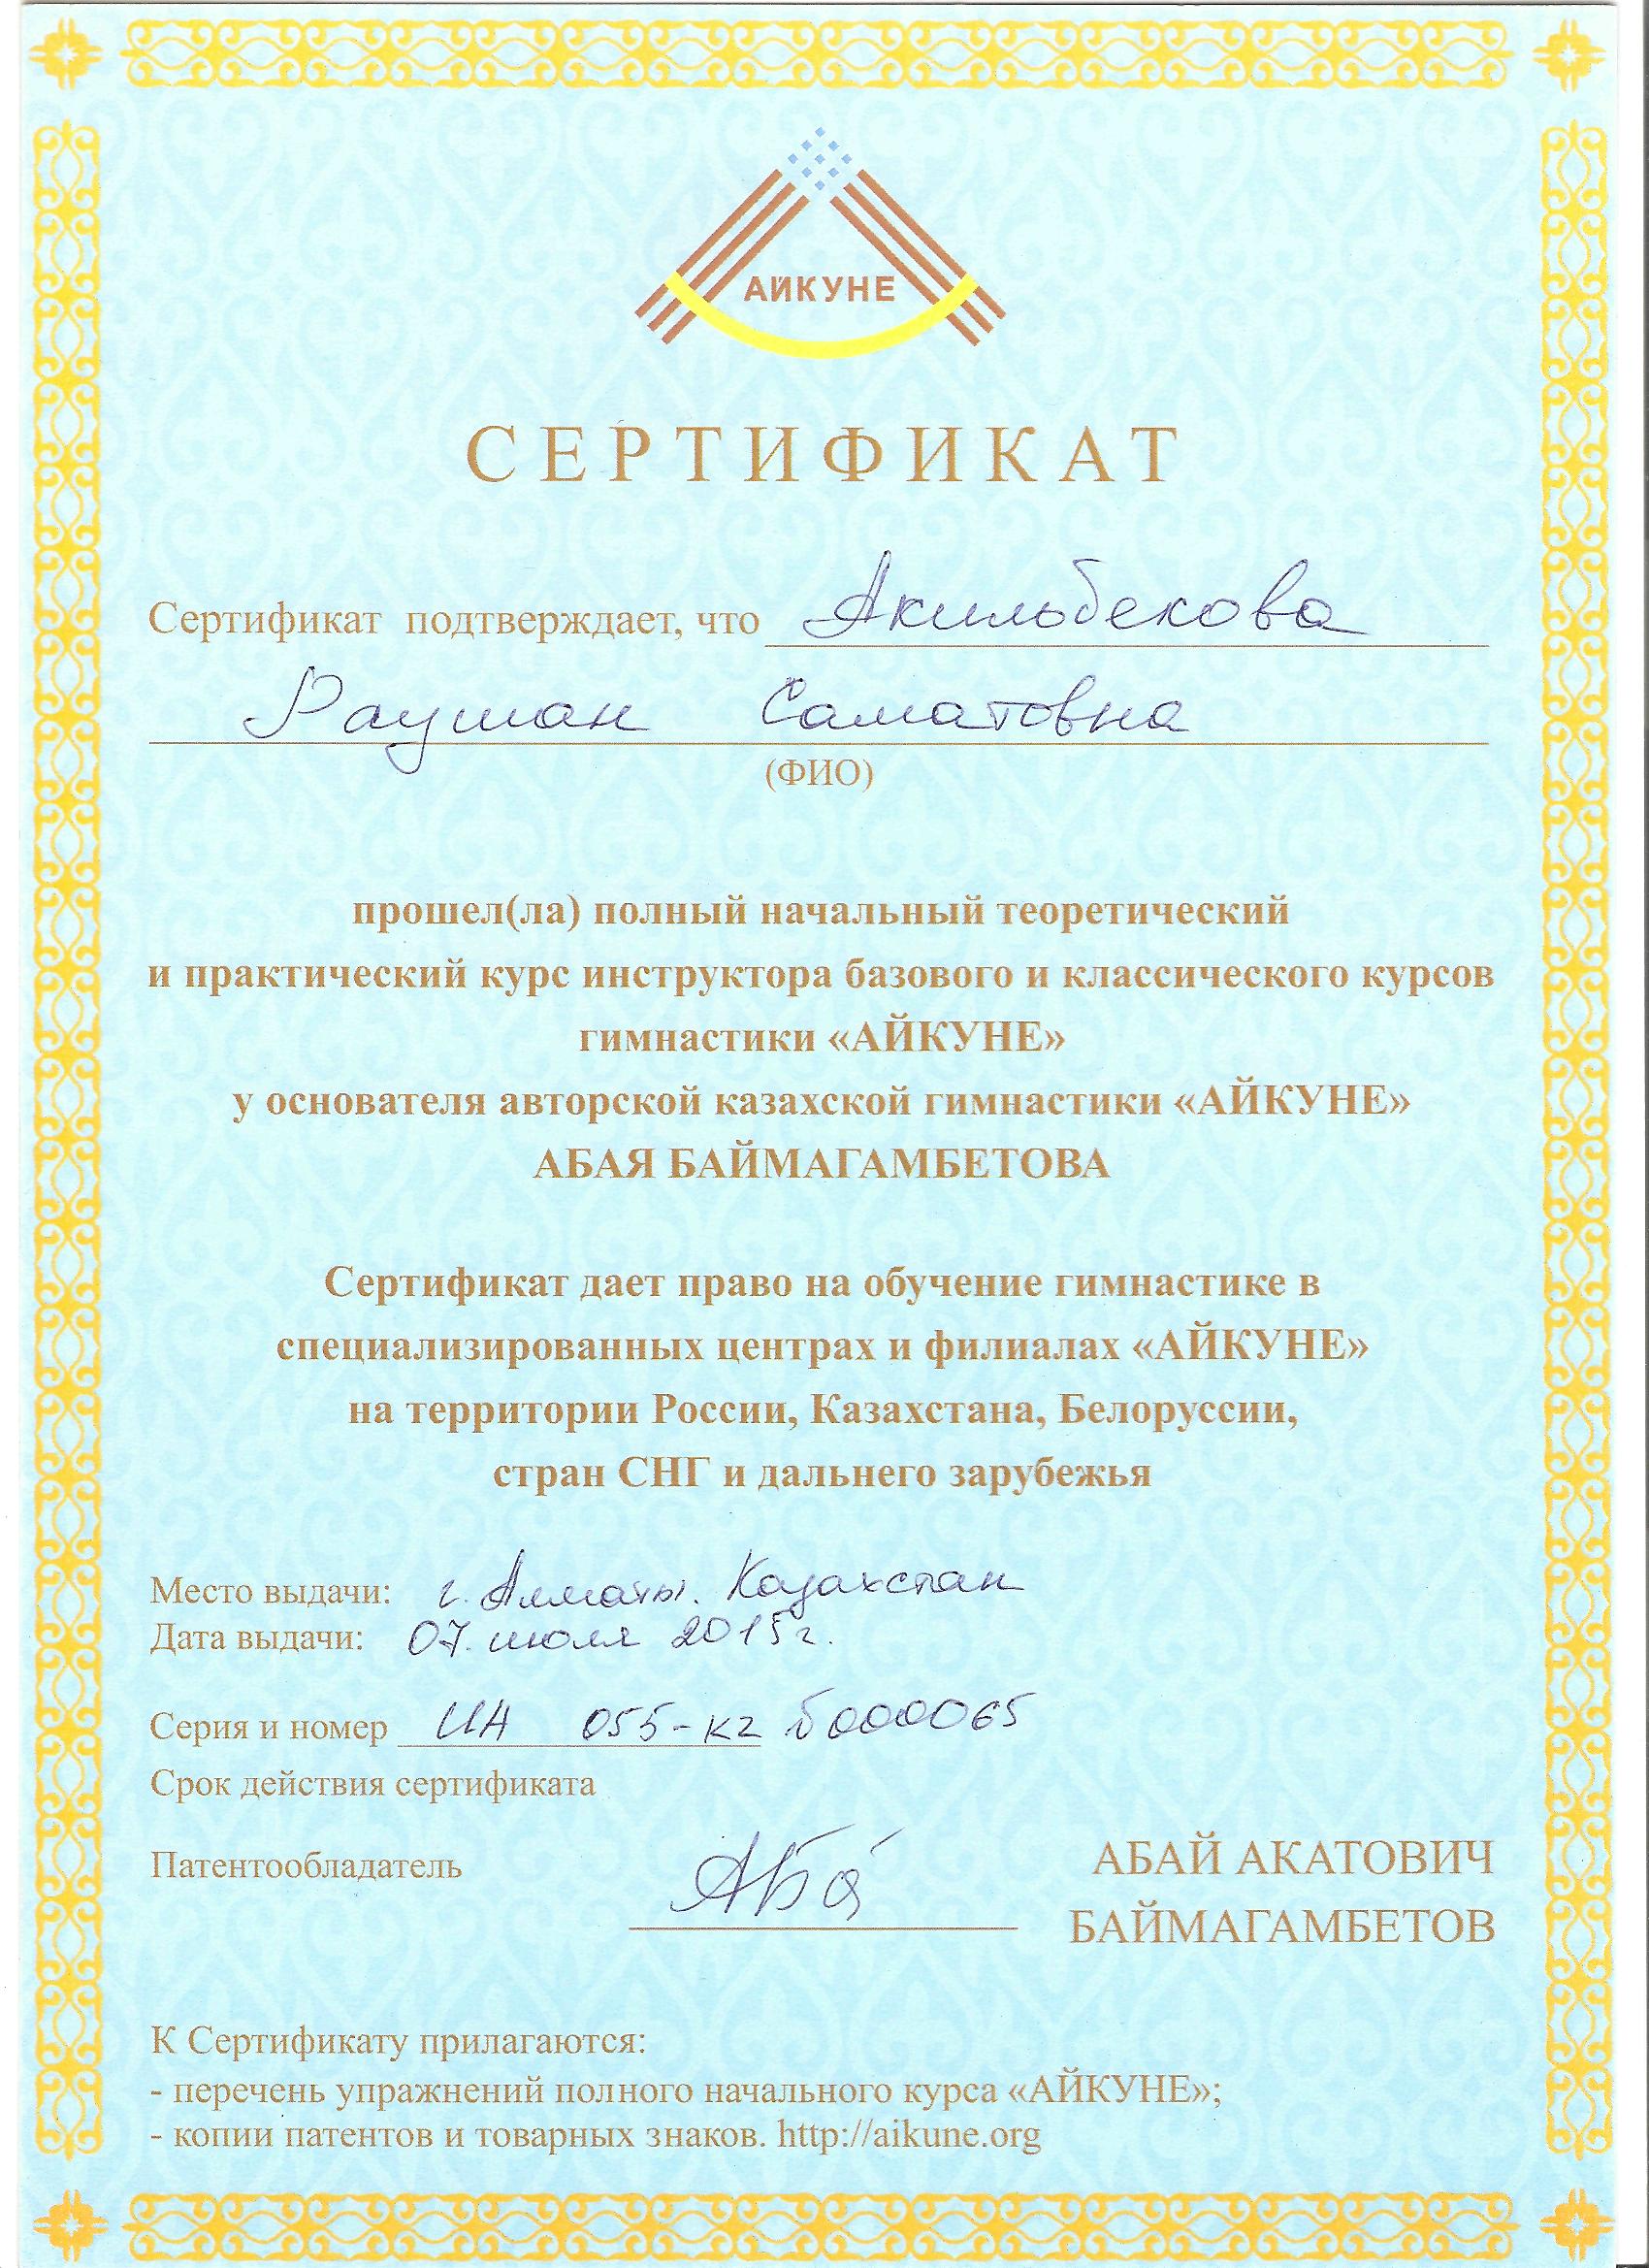 АЙКУНЕ
СЕРТИФИКАТ
Сертификат подтверждает, что Акильбекова
Раушан Саматовна
(ФИО)
прошел(ла) полный начальный теоретический
и практический курс инструктора базового и классического курсов
гимнастики «АЙКУНЕ»
у основателя авторской казахской гимнастики «АЙКУНЕ»
АБАЯ БАЙМАГАМБЕТОВА
Сертификат дает право на обучение гимнастике в
специализированных центрах и филиалах «АЙКУНЕ»
на территории России, Казахстана, Белоруссии,
стран СНГ и дальнего зарубежья
Место выдачи: г. Алматы. Казахстан
Дата выдачи: 07. июля 2015г.
Серия и номер ИА 055-кг Б000065
Срок действия сертификата
Патентообладатель
АБАЙ АКАТОВИЧ
БАЙМАГАМБЕТОВ
К Сертификату прилагаются:
- перечень упражнений полного начального курса «АЙКУНЕ»;
- копии патентов и товарных знаков. http://aikune.org